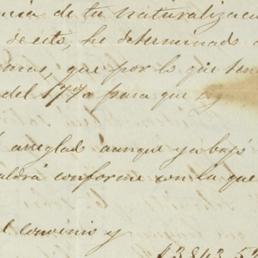 ncia de tu naturalizac
de esto, he determinado
que por lo que ten
del 1770 para que
arreglad aunque ya bajo
aldrá conforme con la que
l convenio y
13843.5